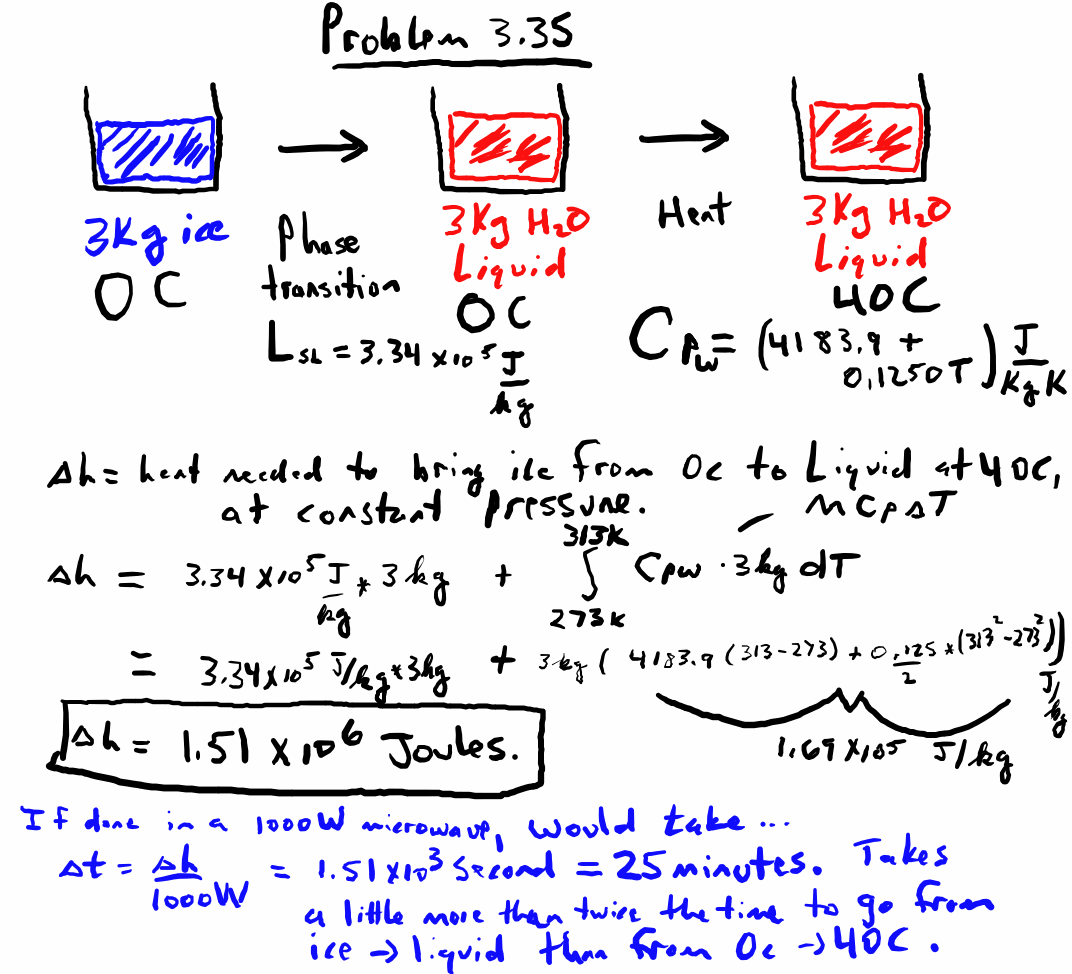 Problem 3.35
3Kg ice
0 C
Phase
transition
L_SL = 3.34 x10^5 J/kg
3Kg H2O
Liquid
0 C
Heat
3Kg H2O
Liquid
40C
C_Pw = (4183.9 + 0.1250T) J/KgK
Δh = heat needed to bring ice from 0c to Liquid at 40C,
at constant pressure.
mCpΔT
Δh = 3.34 x10^5 J/kg * 3 kg + ∫_273K^313K Cpw · 3kg dT
= 3.34x10^5 J/kg*3kg + 3kg ( 4183.9 (313-273) + 0.125/2 *(313^2-273^2)) J/kg
1.69 x10^5 J/kg
Δh = 1.51 x10^6 Joules.
If done in a 1000W microwave, would take...
Δt = Δh/1000W = 1.51x10^3 second = 25 minutes. Takes
a little more than twice the time to go from
ice → liquid than from 0c → 40C.